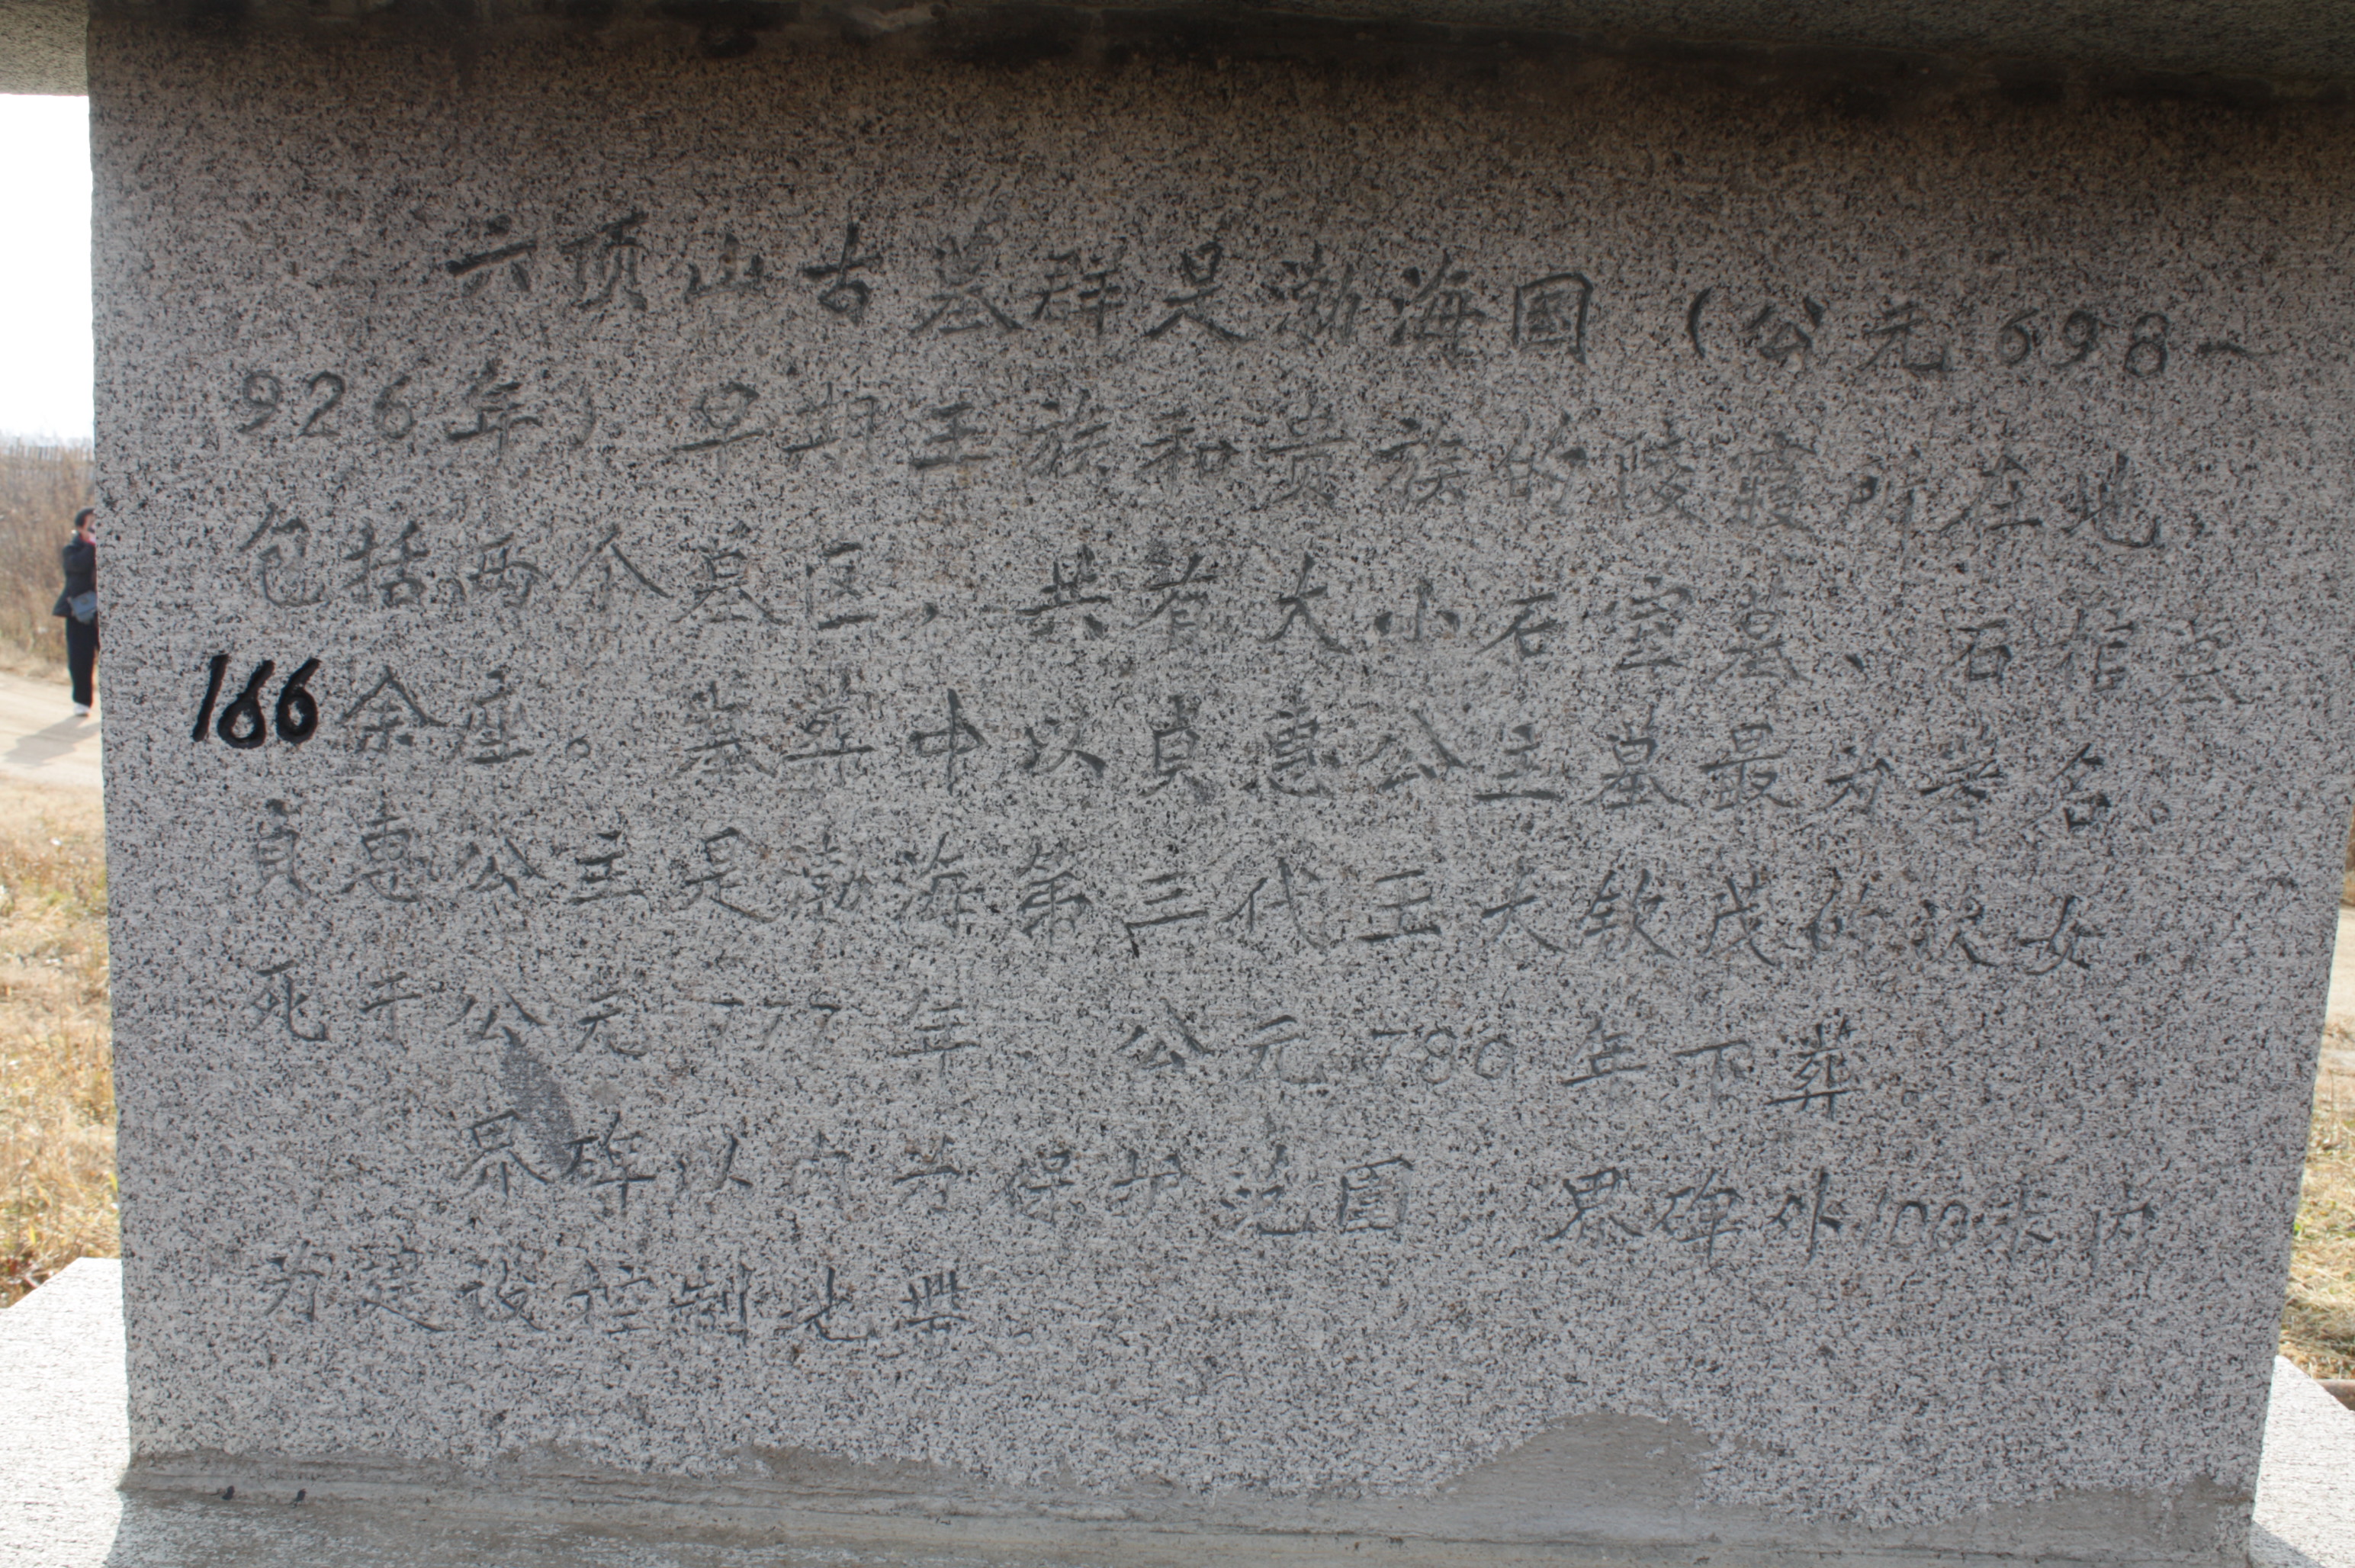 六顶山古墓群是渤海国（公元698～
926年）早期王族和贵族的陵寝所在地，
包括两个墓区，共有大小石室墓、石棺墓
166余座。墓葬中以贞惠公主墓最为著名。
贞惠公主是渤海第三代王大钦茂的次女
死于公元777年 公元780年下葬。
界碑以内为保护范围，界碑外100米内
为建设控制地带。